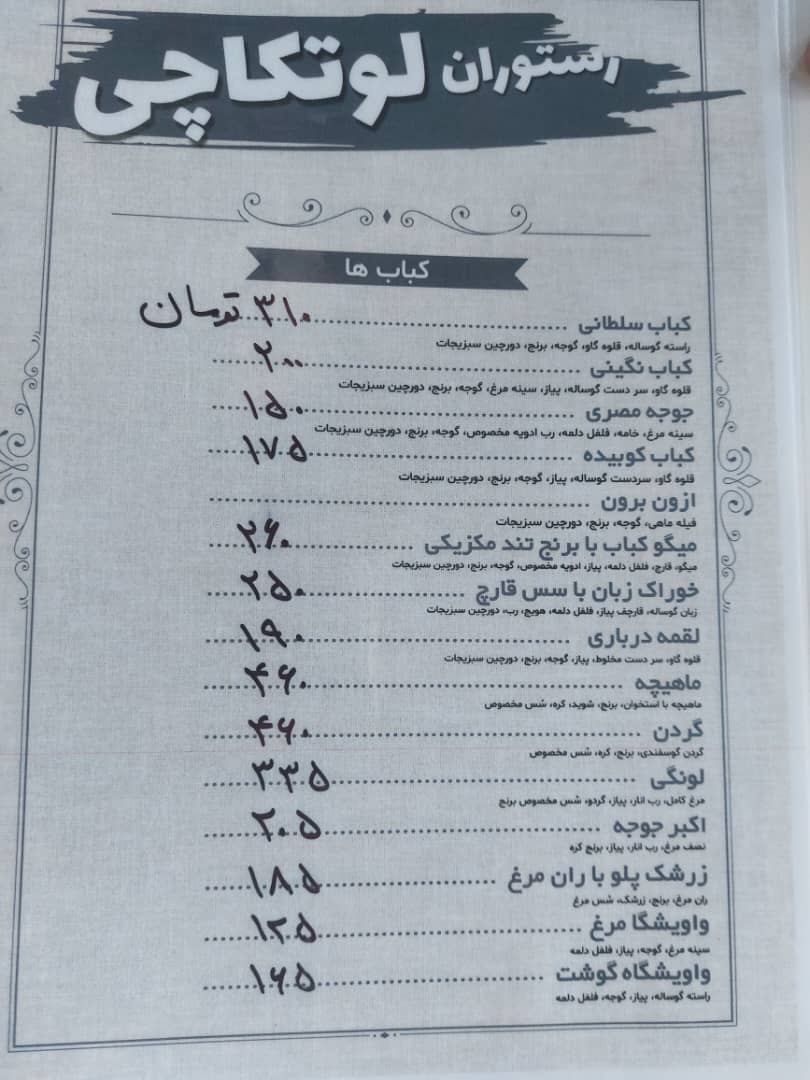 رستوران لوتکاچی
کباب ها
کباب سلطانی ........ ۳۱۰ تومان
راسته گوساله، قلوه گاو، گوجه، برنج، دورچین سبزیجات
کباب نگینی ........ ۲۰۰
قلوه گاو، سر دست گوساله، پیاز، سینه مرغ، گوجه، برنج، دورچین سبزیجات
جوجه مصری ........ ۱۵۰
سینه مرغ، خامه، فلفل دلمه، رب ادویه مخصوص، گوجه، برنج، دورچین سبزیجات
کباب کوبیده ........ ۱۷۵
قلوه گاو، سردست گوساله، پیاز، گوجه، برنج، دورچین سبزیجات
ازون برون ........
فیله ماهی، گوجه، برنج، دورچین سبزیجات
میگو کباب با برنج تند مکزیکی ........ ۲۶۰
میگو، قارچ، فلفل دلمه، پیاز، ادویه مخصوص، گوجه، برنج، دورچین سبزیجات
خوراک زبان با سس قارچ ........ ۲۵۰
زبان گوساله، قارچف پیاز، فلفل دلمه، هویج، رب، دورچین سبزیجات
لقمه درباری ........ ۱۹۰
قلوه گاو، سر دست مخلوط، پیاز، گوجه، برنج، دورچین سبزیجات
ماهیچه ........ ۴۶۰
ماهیچه با استخوان، برنج، شوید، کره، سُس مخصوص
گردن ........ ۴۶۰
گردن گوسفندی، برنج، کره، سُس مخصوص
لونگی ........ ۳۳۵
مرغ کامل، رب انار، پیاز، گردو، سُس مخصوص برنج
اکبر جوجه ........ ۲۰۵
نصف مرغ، رب انار، پیاز، برنج کره
زرشک پلو با ران مرغ ........ ۱۸۵
ران مرغ، برنج، زرشک، سُس مرغ
واویشگا مرغ ........ ۱۲۵
سینه مرغ، گوجه، پیاز، فلفل دلمه
واویشگاه گوشت ........ ۱۶۵
راسته گوساله، پیاز، گوجه، فلفل دلمه